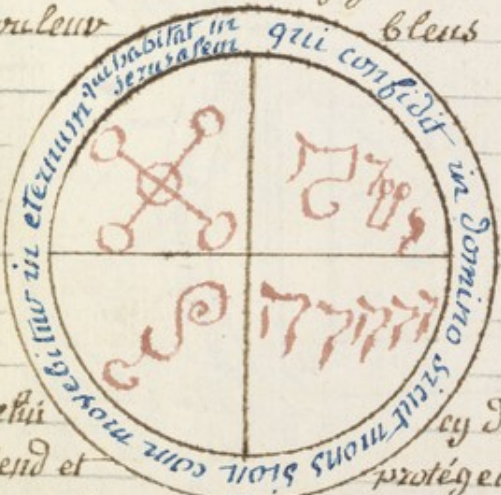 couleur bleus
qui confidit in Domino sicut mons sion com movebitur in eternum qui habitat in
jerusalem
cy d
end et protéger